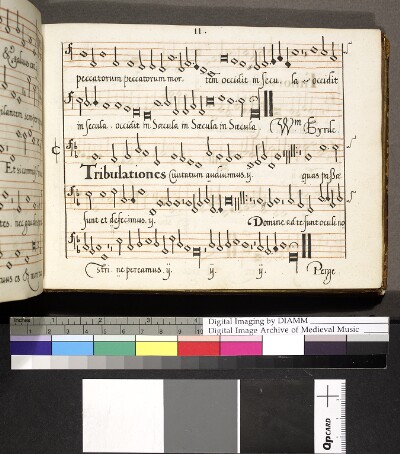 11.
peccatorum peccatorum mor. tem occidit in secu. la occidit
in secula. occidit in Sæcula in Sæcula in Sæcula (Wm Byrde
Tribulationes Civitatum audivimus. ij. quas passæ
sunt et defecimus. ij. Domine ad te sunt oculi no
Stri. ne pereamus. ij. ij. ij. Perge
Inches 1 2 3 4
Digital Imaging by DIAMM
Digital Image Archive of Medieval Music
QPCARD